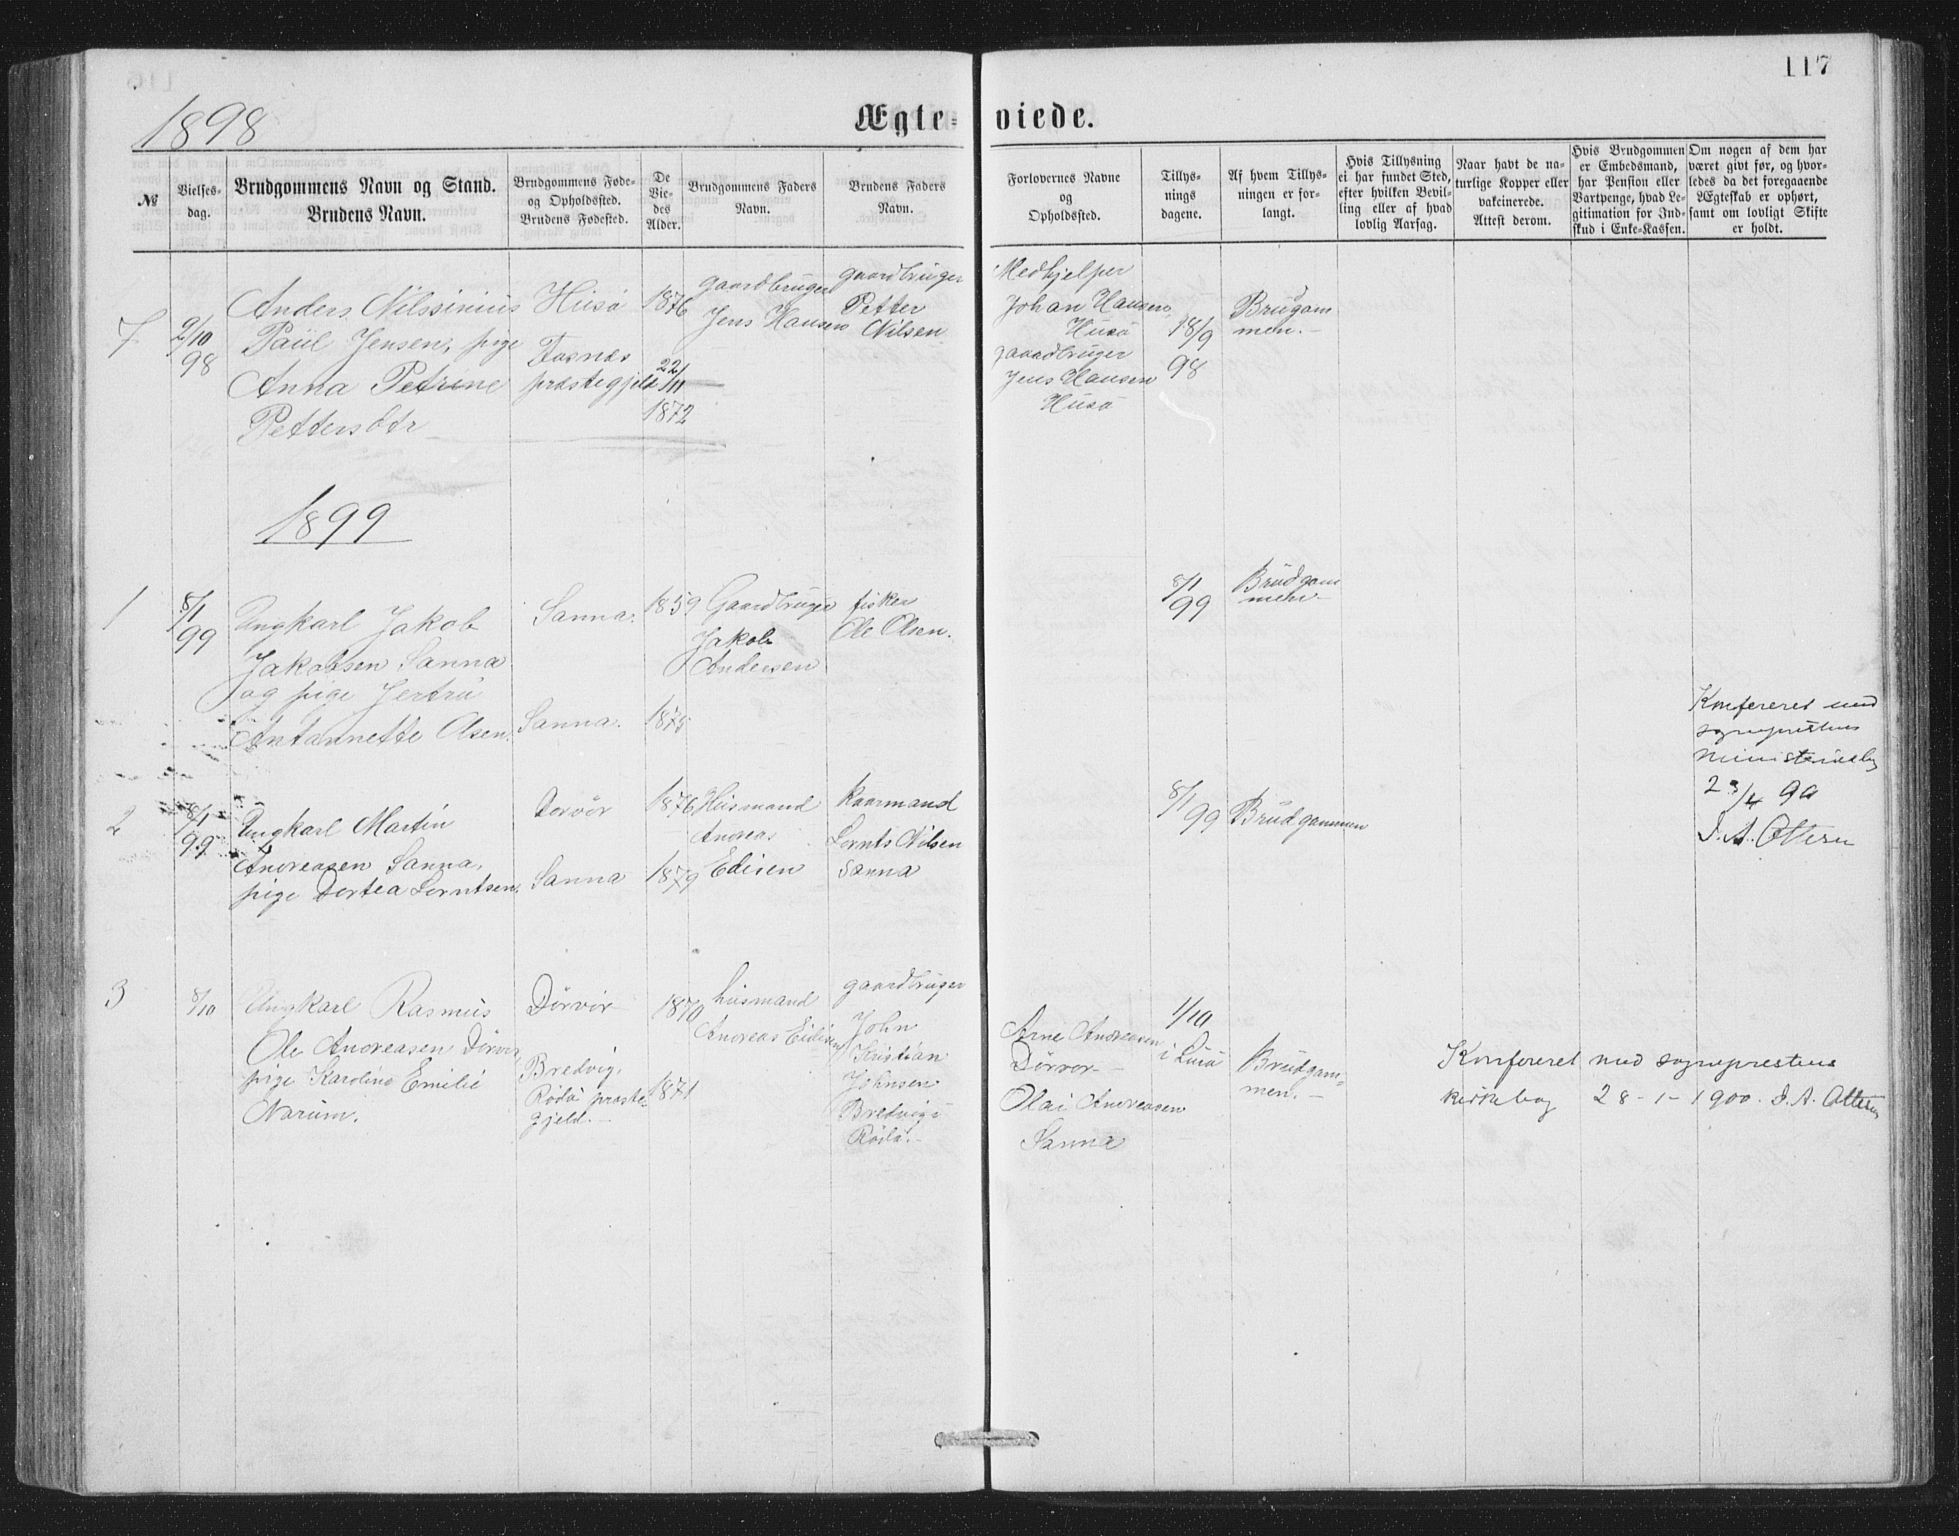 117
1898
Ægteviede.
№
Vielses-
dag.
Brudgommens Navn og Stand.
Brudens Navn.
Brudgommens Føde-
og Opholdssted.
Brudens Fødested.
De
Vie-
des
Alder.
Brudgommens Faders
Navn.
Brudens Faders
Navn.
Forlovernes Navne
og
Opholdssted.
Tillys-
nings
dagene.
Af hvem Tillys-
ningen er for-
langt.
Hvis Tillysning
ei har fundet Sted,
efter hvilken Bevil-
ling eller af hvad
lovlig Aarsag.
Naar havt de na-
turlige Kopper eller
vakcinerede.
Attest derom.
Hvis Brudgommen
er Embedsmand,
har Pension eller
Vartpenge, hvad Le-
gitimation for Ind-
skud i Enke-Kassen.
Om nogen af dem har
været givt før, og hvor-
ledes da det foregaaende
Ægteskab er ophørt,
samt om lovligt Skifte
er holdt.
7
2/10
98
Anders Nilssinius
Paul Jensen, pige
Anna Petrine
Pettersdtr
Husø
Fosnæs
præstegjeld
1876
22/11
1872
gaardbruger
Jens Hansen
gaardbruger
Petter
Nilsen
Medhjelper
Johan Hansen
Husø
gaardbruger
Jens Hansen
Husø
18/9
98
Brugom
men.-
1899
1
8/1
99
Ungkarl Jakob
Jakobsen Sanna
og pige Jertru
Antannette Olsen.
Sanna.
Sanna.
1859
1875
Gaardbruger
Jakob
Andersen
fisker
Ole Olsen.
8/1
99
Brudgom
men.-
Konfereret med
sogneprestens
ministerialbog
23/4 99
J. A. Ottesen
2
8/1
99
Ungkarl Martin
Andreasen Sanna,
pige Dortea Lorntsen.
Dørvør
Sanna
1876
1879
Husmand
Andreas
Edisen
Kaarmand
Lornts Nilsen
Sanna
8/1
99
Brudgommen
3
8/10
Ungkarl Rasmus
Ole Andreasen Dørvør,
pige Karolina Emilie
Narum.
Dørvør
Bredvig,
Rødø præste-
gjeld.-
1870
1871
husmand
Andreas Eidisen
gaardbruger
John
Kristian
Johnsen
Bredvig i
Rødø.-
Arne Andreasen
Dørvør-
Olai Andreasen
Sanna
1/10
i Lurø
Brudgom-
men.-
Konfereret med sogneprestens
kirkebog 28-1-1900. J. A. Ottesen